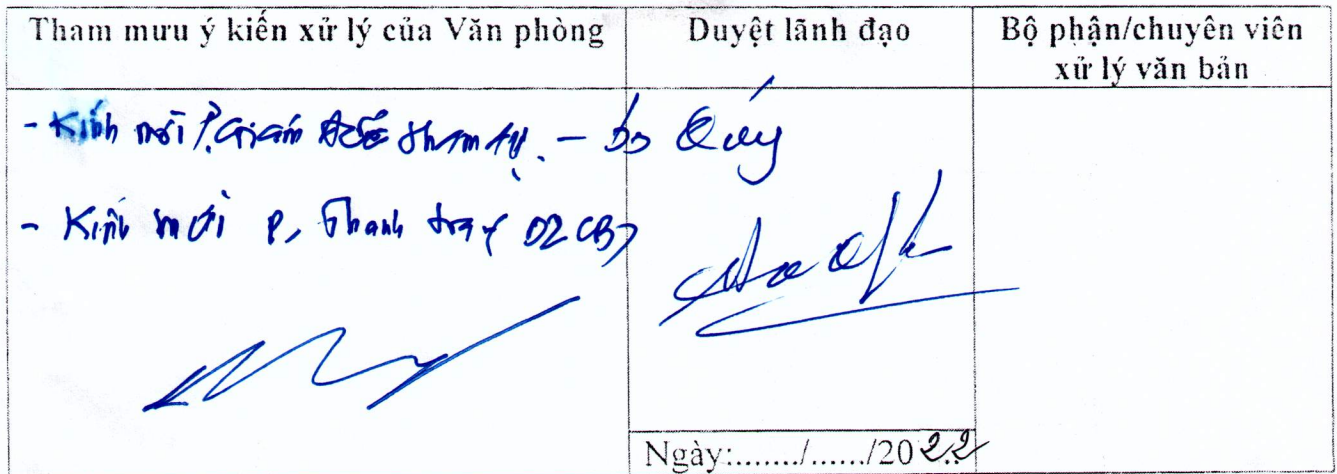 Tham mưu ý kiến xử lý của Văn phòng
Duyệt lãnh đạo
Bộ phận/chuyên viên
xử lý văn bản
- Kính mời P. Giám đốc tham dự. - Đ/c Quý
- Kính mời P. Thanh tra 02 CB
Ngày:......./....../2022